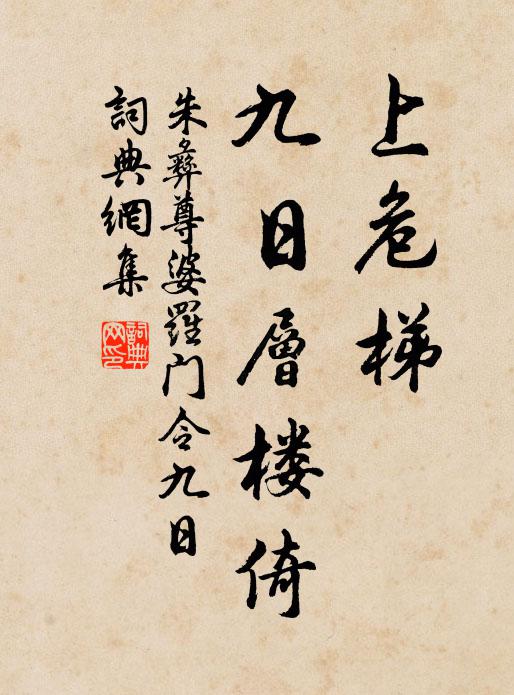 上危梯
九日層楼倚
朱彝尊婆羅门令九日
詞典網集
詞典网印